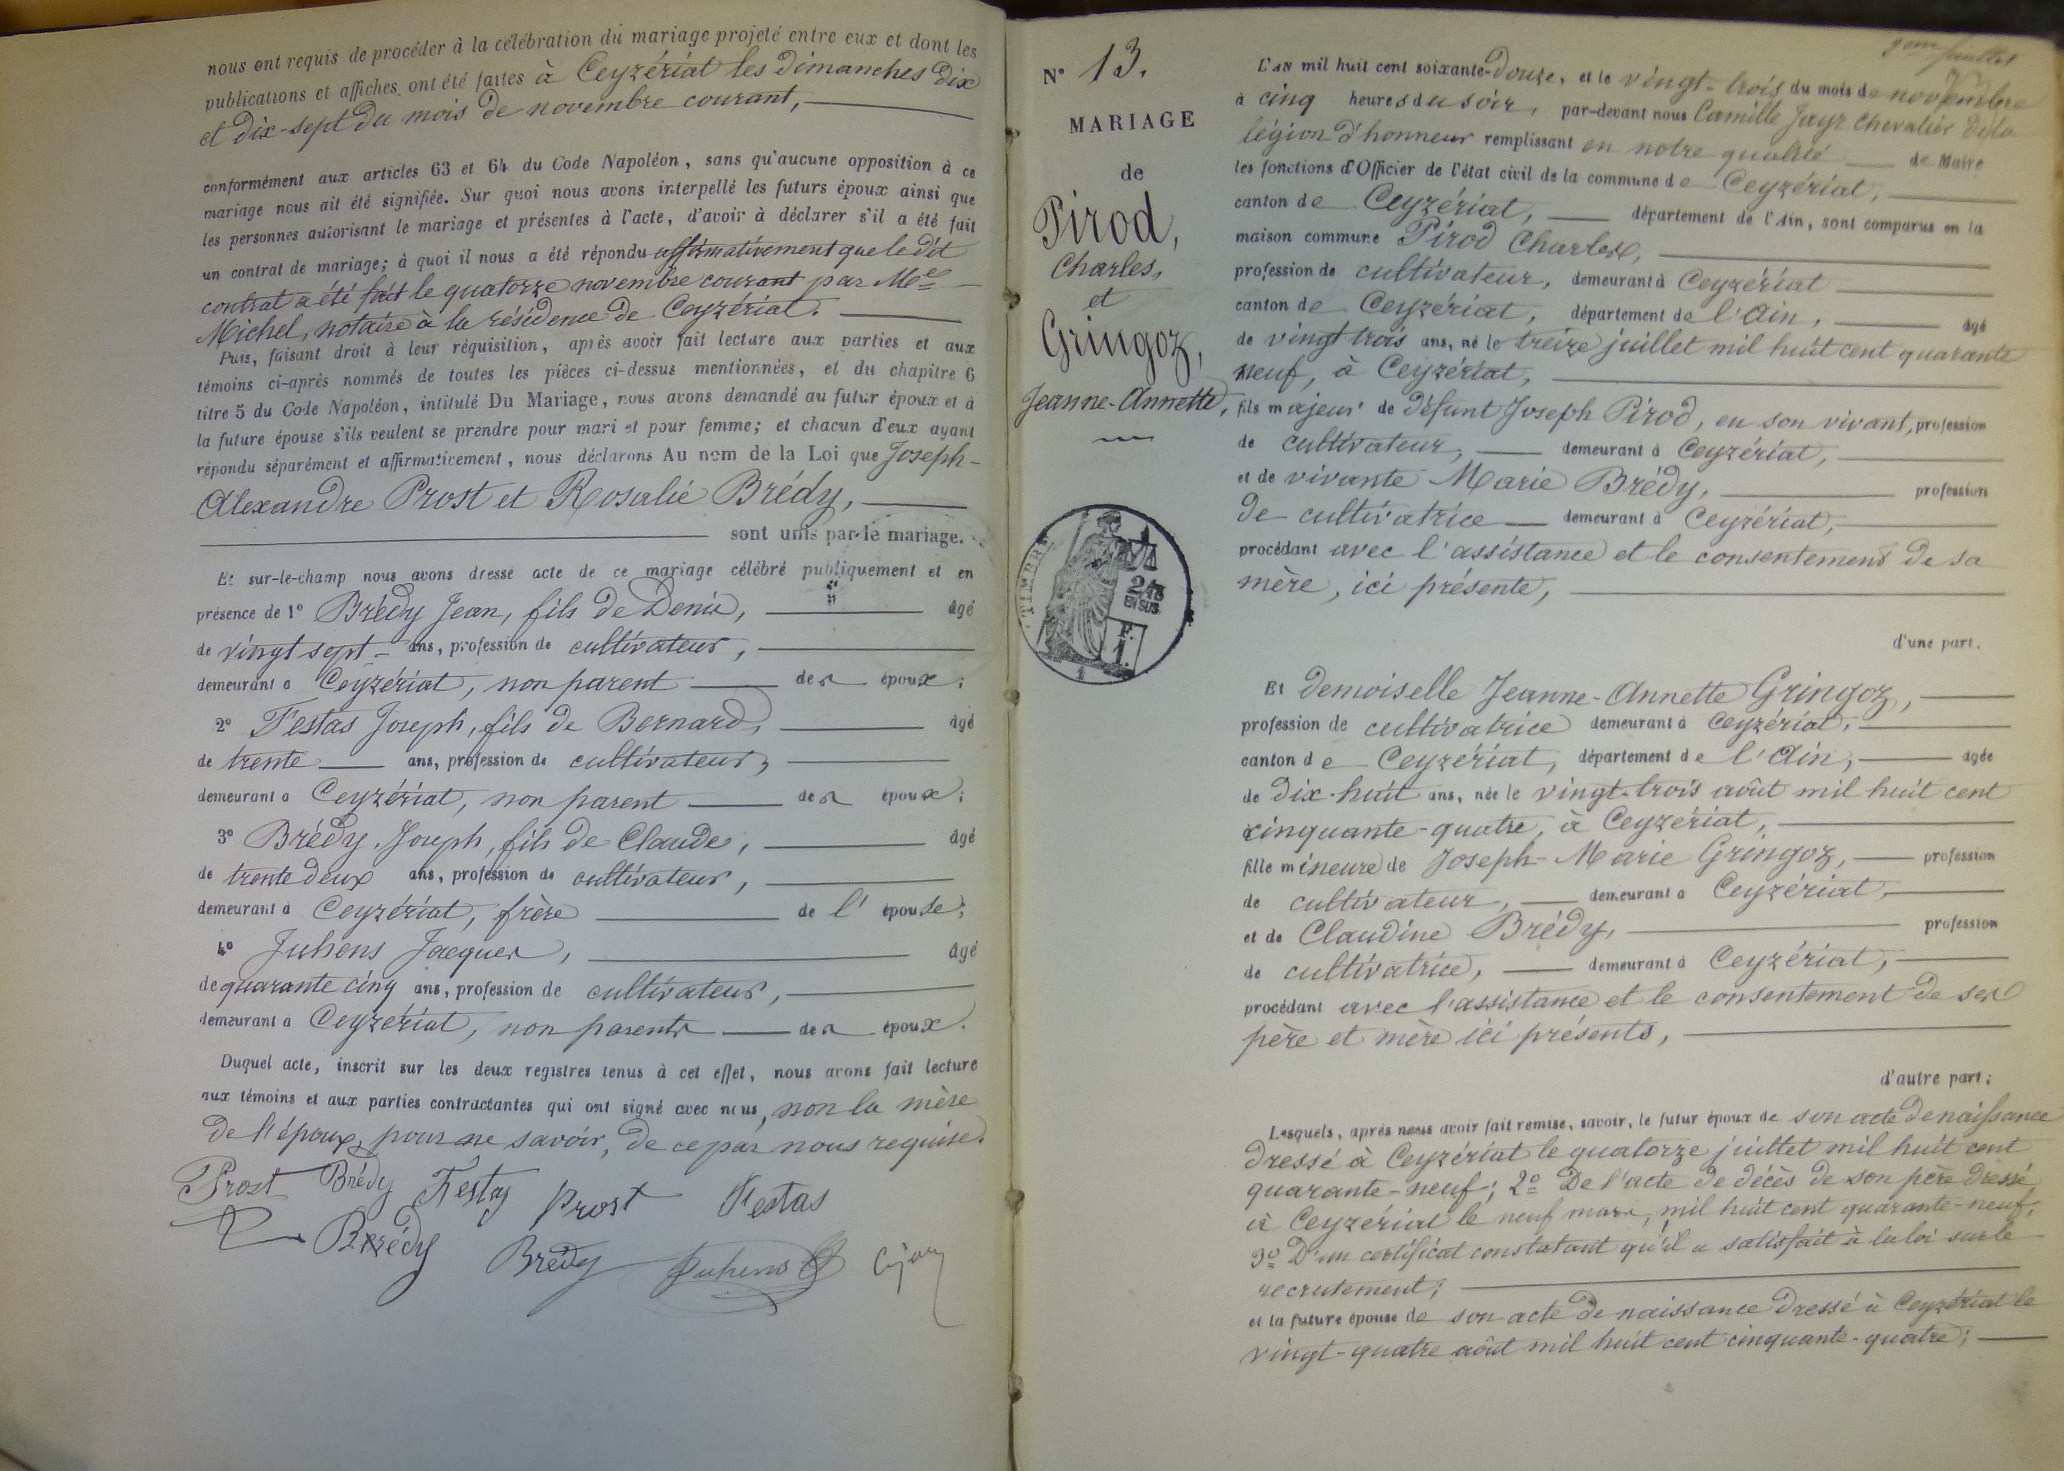 nous ont requis de procéder à la célébration du mariage projeté entre eux et dont les
publications et affiches ont été faites à Ceyzériat les dimanches dix
et dix-sept du mois de novembre courant,
conformément aux articles 63 et 64 du Code Napoléon, sans qu'aucune opposition à ce
mariage nous ait été signifiée. Sur quoi nous avons interpellé les futurs époux ainsi que
les personnes autorisant le mariage et présentes à l'acte, d'avoir à déclarer s'il a été fait
un contrat de mariage; à quoi il nous a été répondu affirmativement que le dit
contrat a été fait le quatorze novembre courant par Me
Michel, notaire à la résidence de Ceyzériat.
Puis, faisant droit à leur réquisition, après avoir fait lecture aux parties et aux
témoins ci-après nommés de toutes les pièces ci-dessus mentionnées, et du chapitre 6
titre 5 du Code Napoléon, intitulé Du Mariage, nous avons demandé au futur époux et à
la future épouse s'ils veulent se prendre pour mari et pour femme; et chacun d'eux ayant
répondu séparément et affirmativement, nous déclarons Au nom de la Loi que Joseph-
Alexandre Prost et Rosalie Brédy,
sont unis par le mariage.
Et sur-le-champ nous avons dressé acte de ce mariage célébré publiquement et en
présence de 1° Brédy Jean, fils de Denis, âgé
de vingt sept ans, profession de cultivateur,
demeurant à Ceyzériat, non parent des époux;
2° Festas Joseph, fils de Bernard, âgé
de trente ans, profession de cultivateur,
demeurant à Ceyzériat, non parent des époux;
3° Brédy Joseph, fils de Claude, âgé
de trente deux ans, profession de cultivateur,
demeurant à Ceyzériat, frère de l'épouse;
4° Juhens Jacques, âgé
de quarante cinq ans, profession de cultivateur,
demeurant à Ceyzériat, non parents des époux.
Duquel acte, inscrit sur les deux registres tenus à cet effet, nous avons fait lecture
aux témoins et aux parties contractantes qui ont signé avec nous, non la mère
de l'époux, pour ne savoir, de ce par nous requise.
Prost Brédy Festas Prost Festas
Brédy Brédy Juhens
N° 13.
MARIAGE
de
Pirod,
Charles,
et
Gringoz,
Jeanne-Annette,
TIMBRE
2/10
EN SUS
F.
1.
9eme feuillet
L'AN mil huit cent soixante-douze, et le vingt-trois du mois de novembre
à cinq heures du soir, par-devant nous Camille Jayr Chevalier de la
légion d'honneur remplissant en notre qualité de Maire
les fonctions d'Officier de l'état civil de la commune de Ceyzériat,
canton de Ceyzériat, département de l'Ain, sont comparus en la
maison commune Pirod Charles,
profession de cultivateur, demeurant à Ceyzériat
canton de Ceyzériat, département de l'Ain, âgé
de vingt trois ans, né le treize juillet mil huit cent quarante
neuf, à Ceyzériat,
fils majeur de défunt Joseph Pirod, en son vivant, profession
de cultivateur, demeurant à Ceyzériat,
et de vivante Marie Brédy, profession
de cultivatrice demeurant à Ceyzériat,
procédant avec l'assistance et le consentement de sa
mère, ici présente,
d'une part.
Et demoiselle Jeanne-Annette Gringoz,
profession de cultivatrice demeurant à Ceyzériat,
canton de Ceyzériat, département de l'Ain, âgée
de dix-huit ans, née le vingt-trois août mil huit cent
cinquante-quatre, à Ceyzériat,
fille mineure de Joseph-Marie Gringoz, profession
de cultivateur, demeurant à Ceyzériat,
et de Claudine Brédy, profession
de cultivatrice, demeurant à Ceyzériat,
procédant avec l'assistance et le consentement de ses
père et mère ici présents,
d'autre part;
Lesquels, après nous avoir fait remise, savoir, le futur époux de son acte de naissance
dressé à Ceyzériat le quatorze juillet mil huit cent
quarante-neuf; 2° De l'acte de décès de son père dressé
à Ceyzériat le neuf mars, mil huit cent quarante-neuf;
3° D'un certificat constatant qu'il a satisfait à la loi sur le
recrutement;
et la future épouse de son acte de naissance dressé à Ceyzériat le
vingt-quatre août mil huit cent cinquante-quatre;